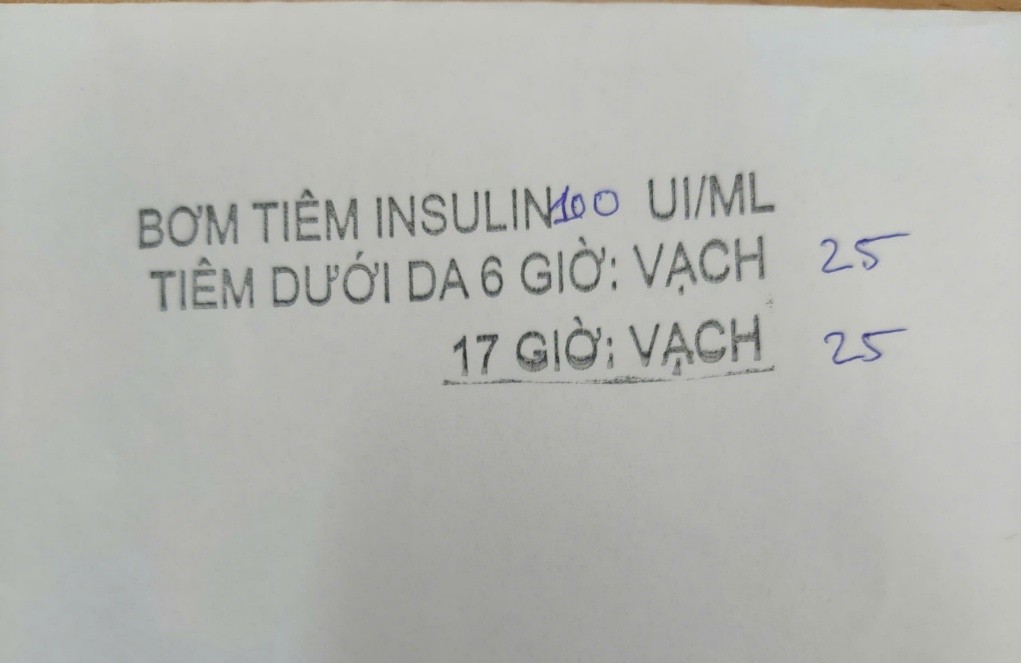 BƠM TIÊM INSULIN 100 UI/ML
TIÊM DƯỚI DA 6 GIỜ: VẠCH 25
17 GIỜ: VẠCH 25